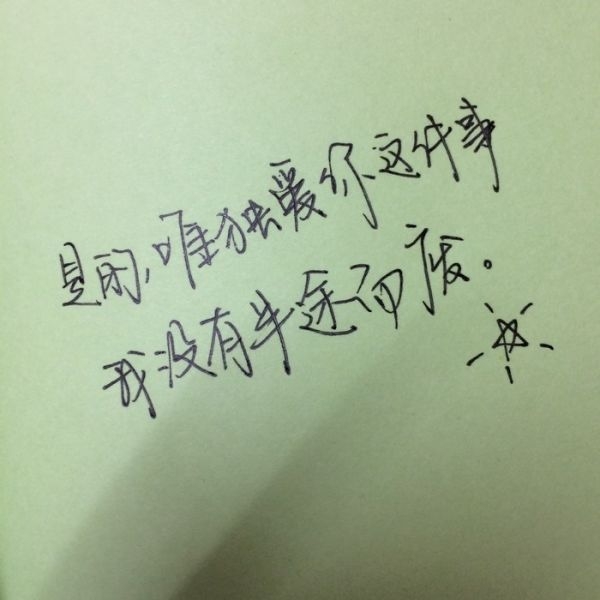 是的,唯独爱你这件事
我没有半途而废。